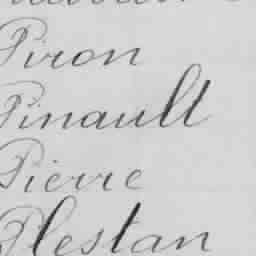 Piron
Pinault
Pierre
Plestan